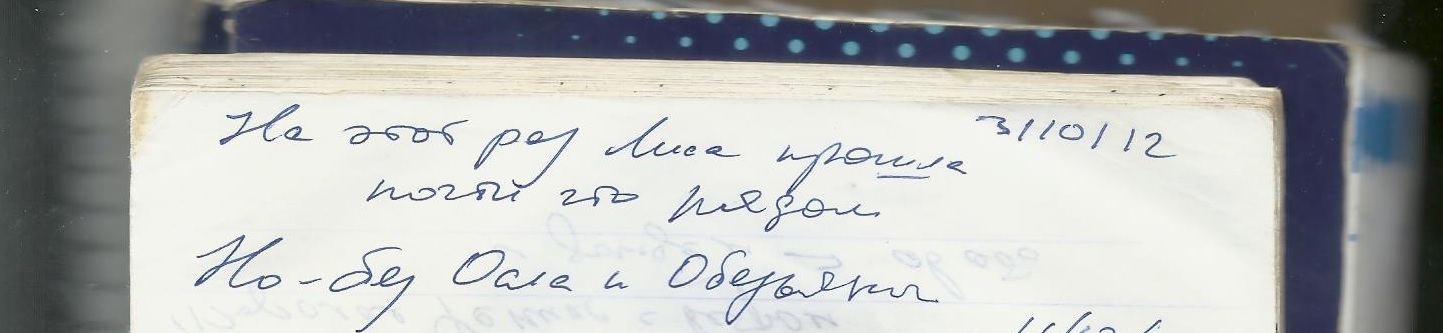 На этот раз Лиса прошла 3/10/12
почти что рядом
Но - без Осла и Обезьяны